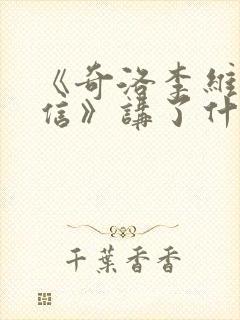 《奇洛李維
信》講了什
千葉香香